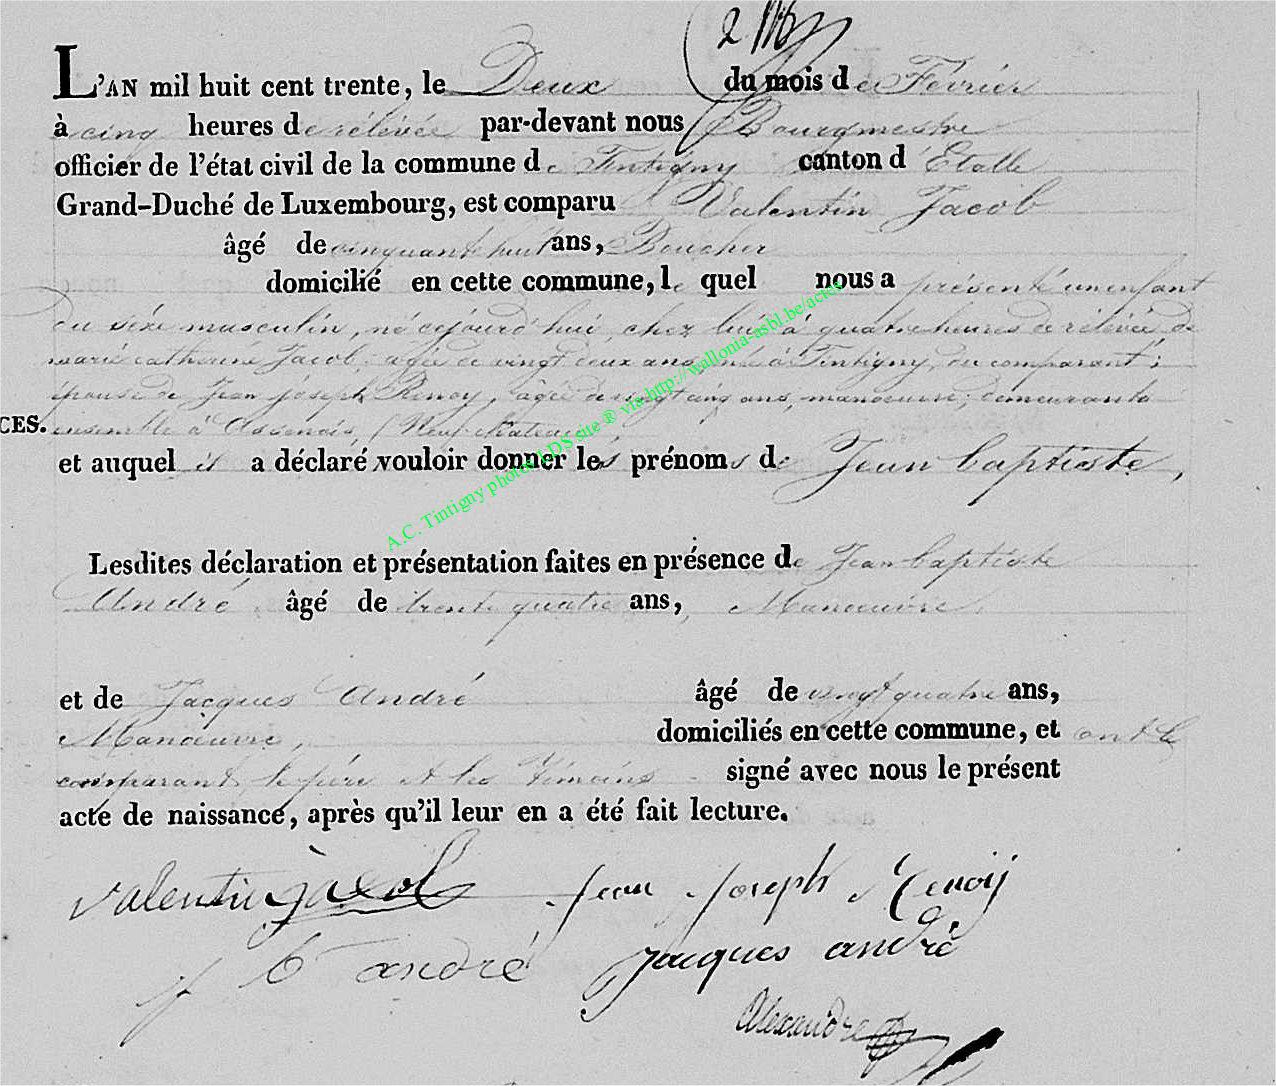 L'AN mil huit cent trente, le Deux du mois de Fevrier
à cinq heures de rélévée par-devant nous Bourgmestre
officier de l'état civil de la commune de Tintigny canton d'Etalle
Grand-Duché de Luxembourg, est comparu Valentin Jacob
âgé de cinquante huit ans, Boucher
domicilié en cette commune, le quel nous a présenté un enfant
du séxe masculin, né cejourd'hui, chez lui à quatre heures de rélévée de
marie catherine Jacob, agée de vingt deux ans, née à Tintigny, du comparant;
épouse de Jean joseph Renoy, âgé de vingt cinq ans, manoeuvre; demeurant
CES.
ensemble à Assenois, (Neufchateau)
et auquel il a déclaré vouloir donner les prénoms de Jean baptiste,
A.C. Tintigny photos LDS site ® via http://wallonia-asbl.be/actes
Lesdites déclaration et présentation faites en présence de Jean baptiste
André, âgé de trente quatre ans, Manoeuvre,
et de Jacques André âgé de vingt quatre ans,
Manoeuvre, domiciliés en cette commune, et ont le
comparant, le père et les témoins signé avec nous le présent
acte de naissance, après qu'il leur en a été fait lecture.
valentin jacob Jean Joseph Renoy
j b andré Jacques andré
Alexandre